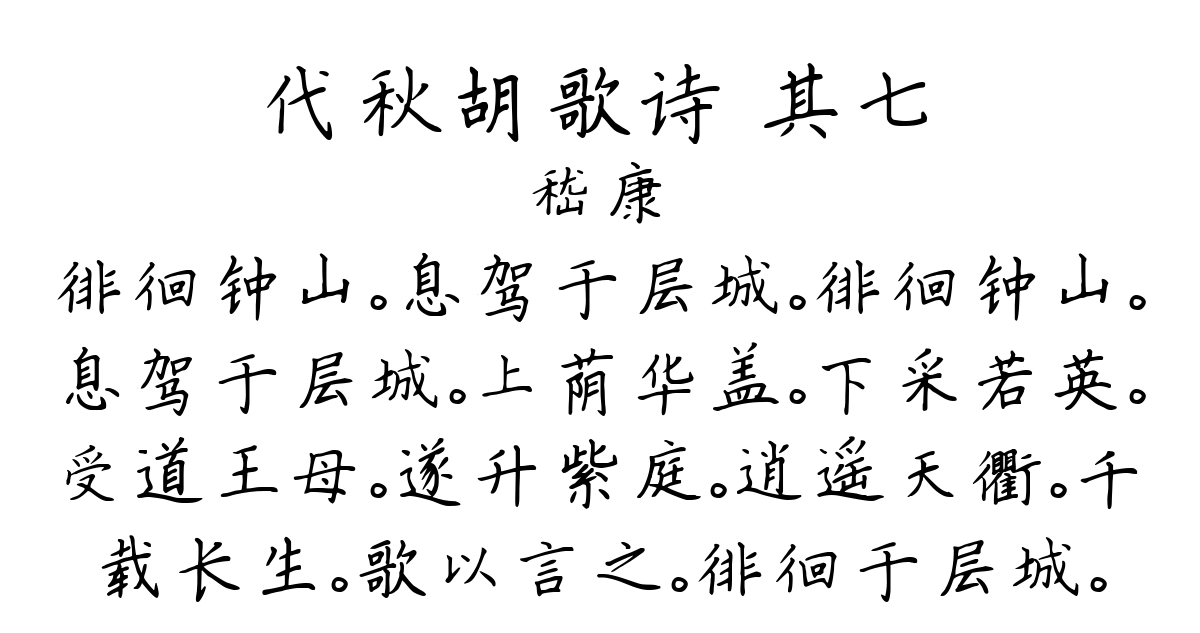 代秋胡歌诗 其七
嵇康
徘徊钟山。息驾于层城。徘徊钟山。
息驾于层城。上荫华盖。下采若英。
受道王母。遂升紫庭。逍遥天衢。千
载长生。歌以言之。徘徊于层城。